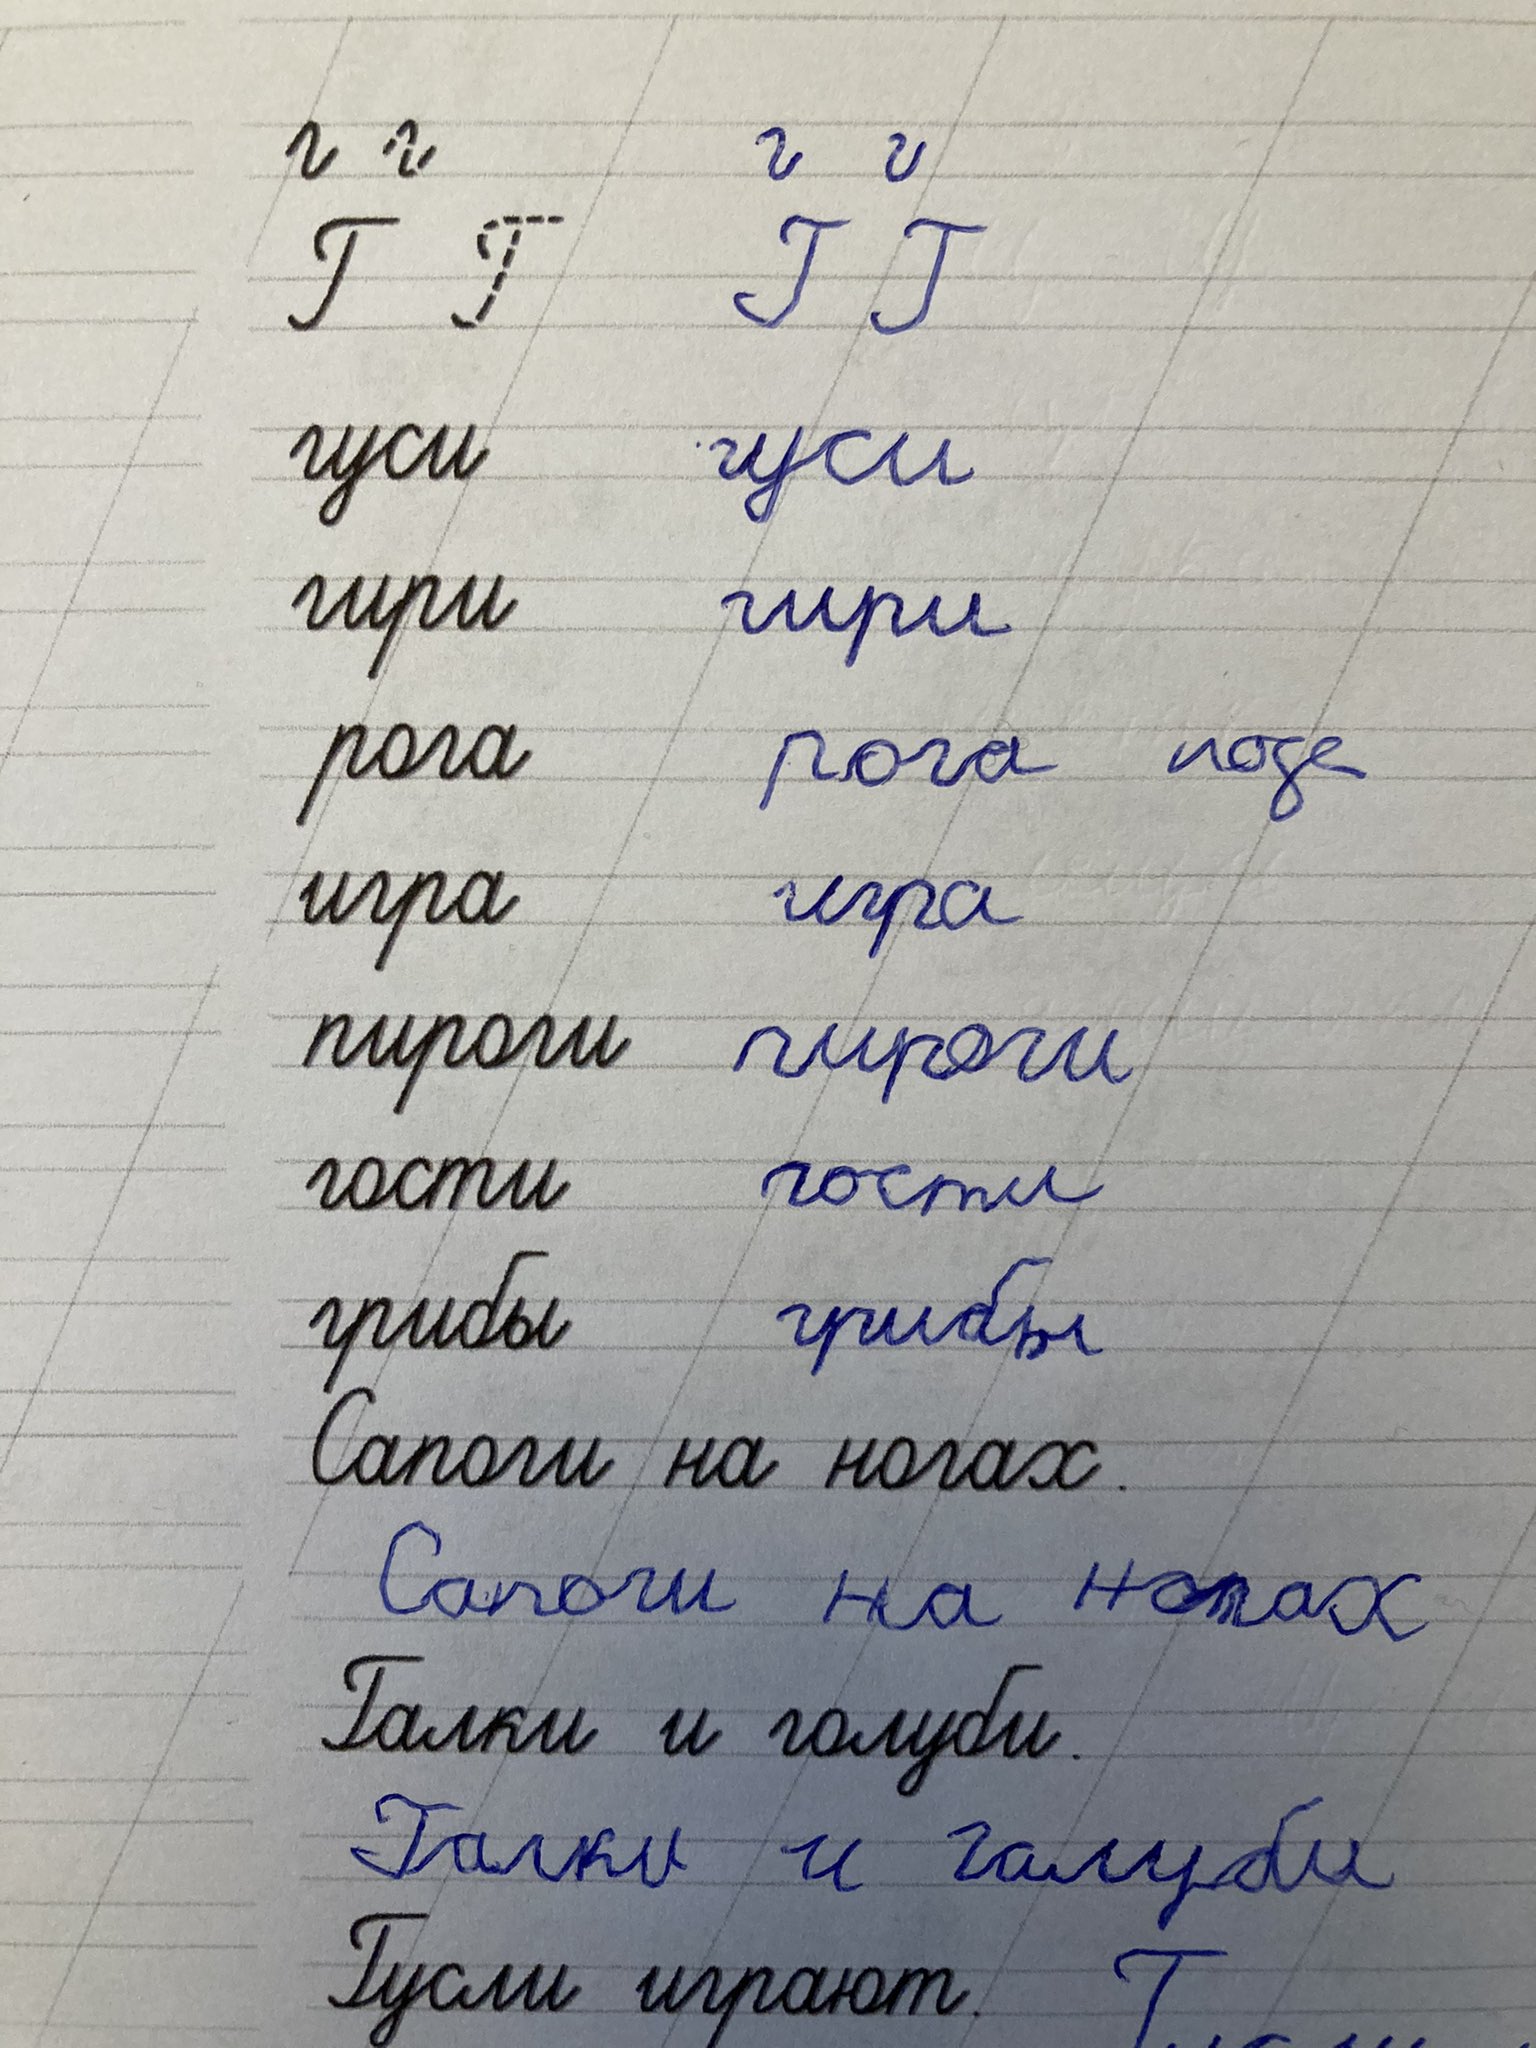 г г г г
Г Г Г Г
гуси гуси
гири гири
рога рога
игра игра
пироги пироги
гости гости
грибы грибы
Сапоги на ногах.
Сапоги на ногах
Галки и голуби.
Галки и галуби
Гусли играют. Гусли